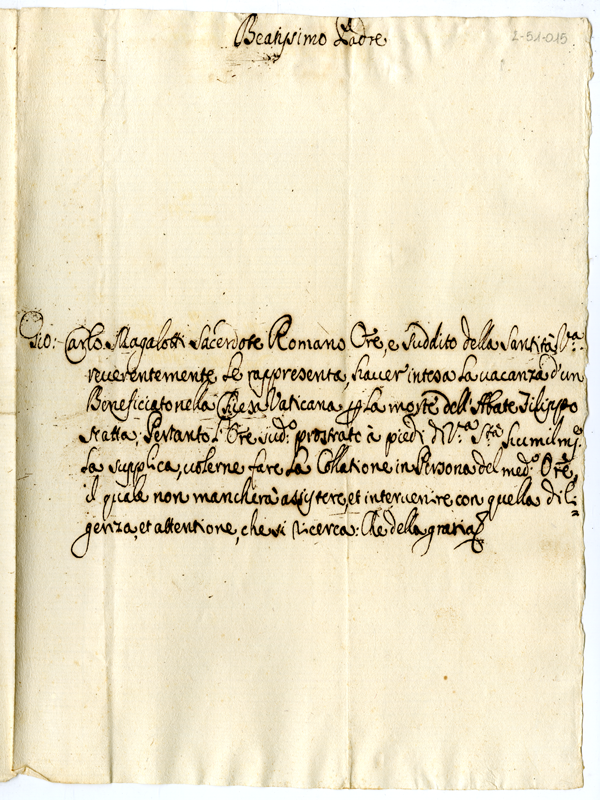 Beatissimo Padre
2-51-015
Gio: Carlo Magalotti Sacerdote Romano Ore, e suddito della Santità V.ra
reverentemente Le rappresenta, haver intesa la vacanza d'un
Beneficiato nella Chiesa Vaticana per la morte dell'Abate Filippo
Pertanto l'Ore sud.o prostrato à piedi di V.ra S.tà humilm.te
La supplica, volerne fare la Collatione in Persona del med.o Ore,
il quale non mancherà assistere, et intervenire con quella dili=
genza, et attentione, che si ricerca: Che della grazia